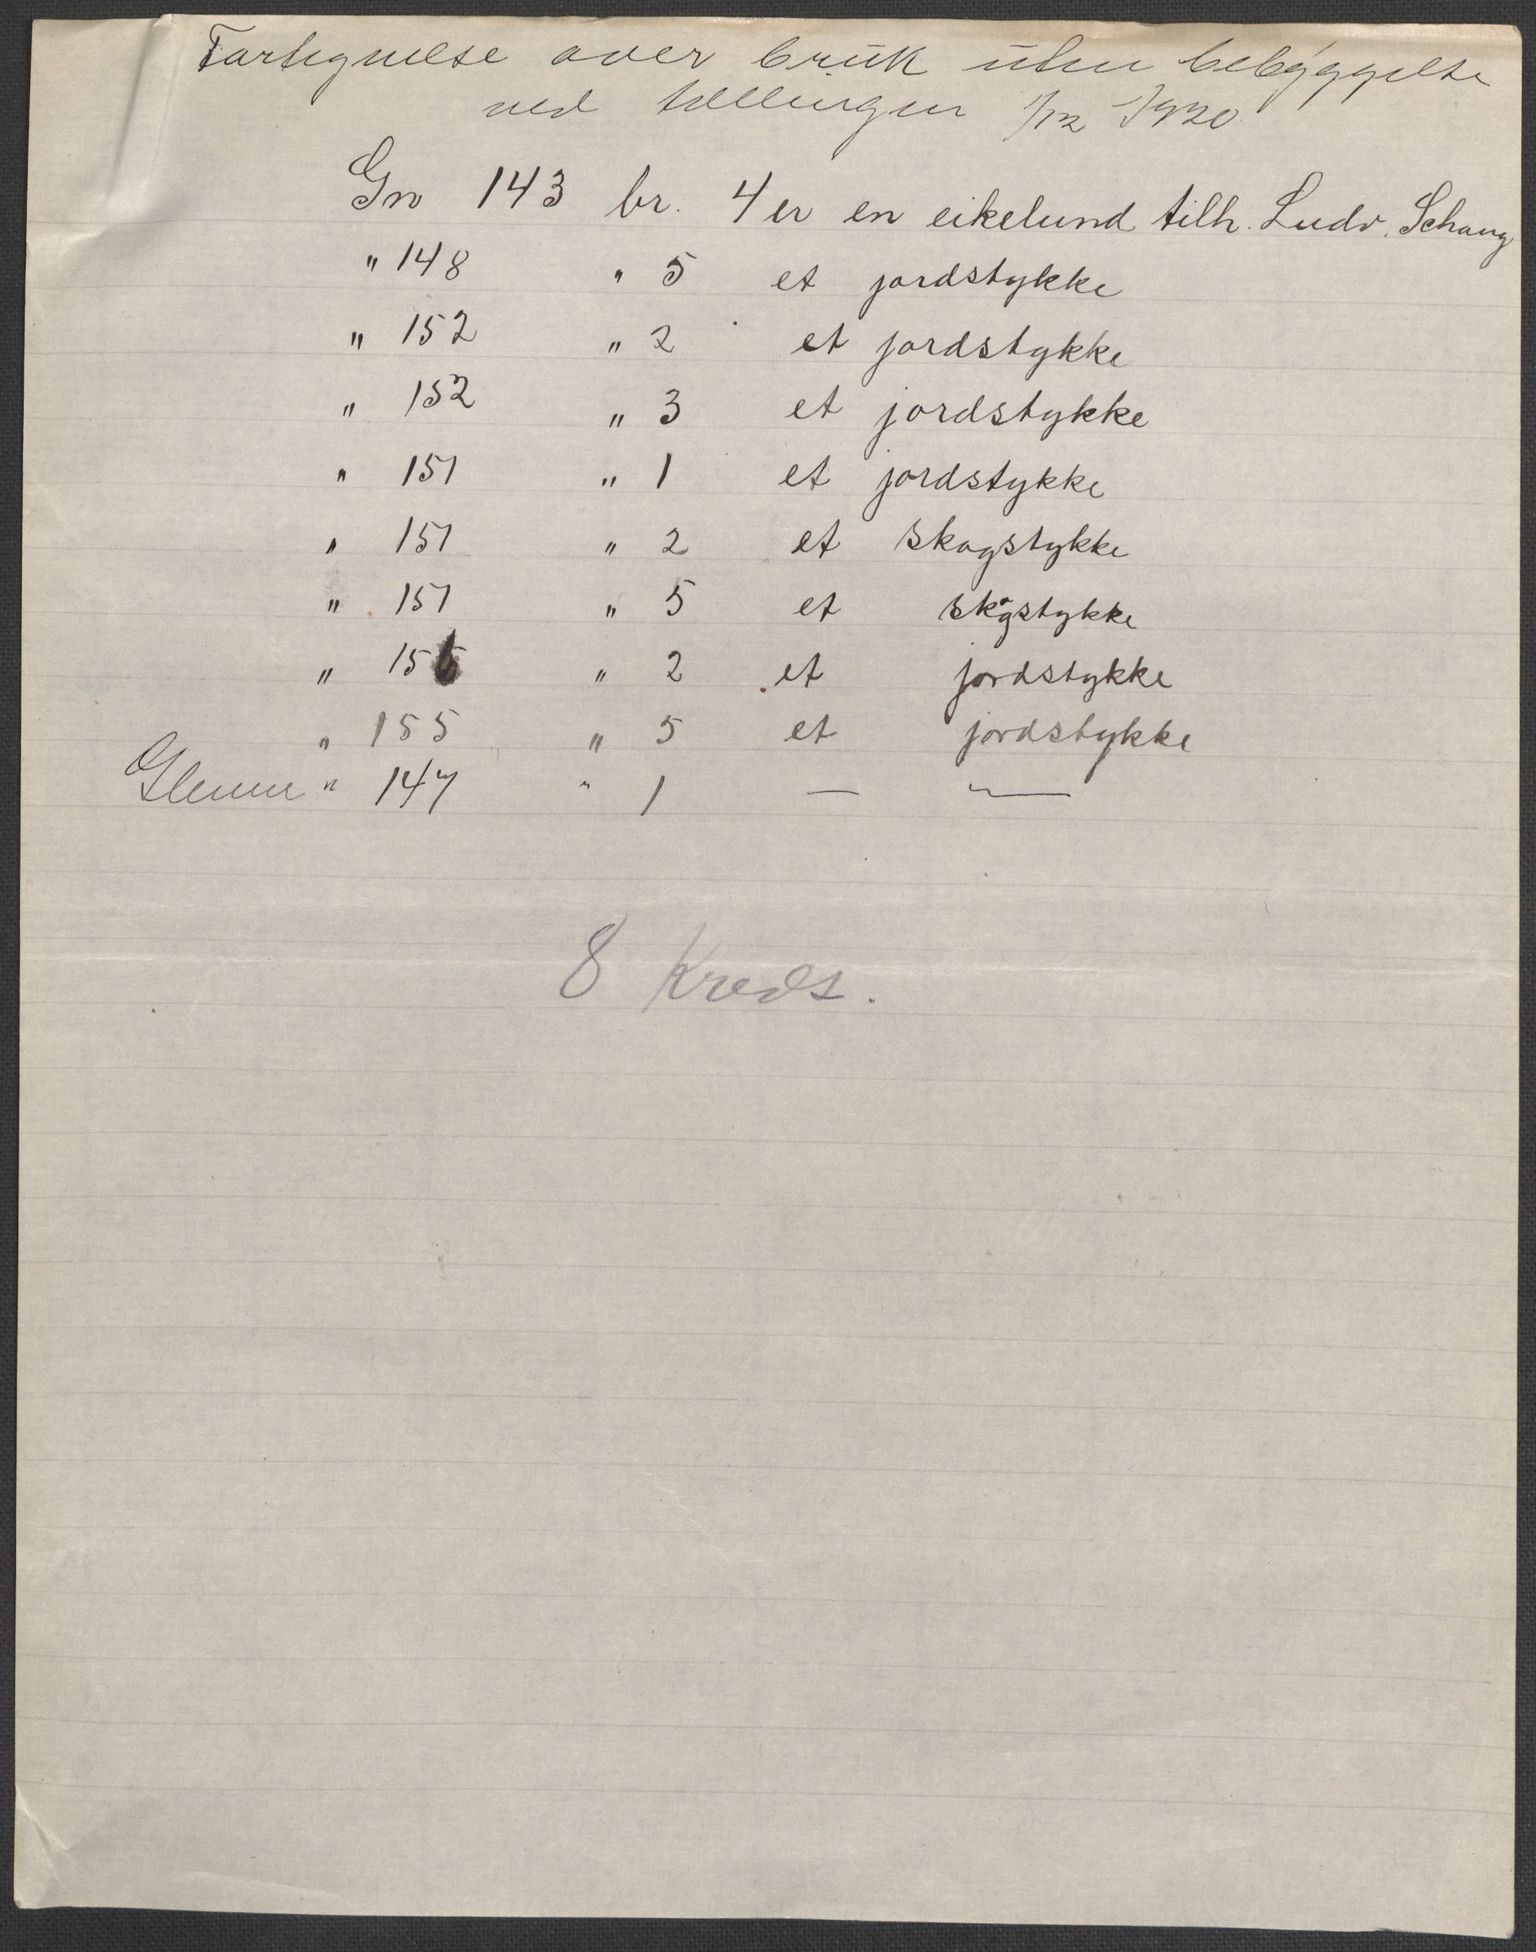 Fortegnelse over bruk uten bebyggelse
ved tællingen 1/12 1920
Gn 143 br. 4 er en eikelund tilh. Ludv. Schaug
" 148 " 5 et jordstykke
" 152 " 2 et jordstykke
" 152 " 3 et jordstykke
" 151 " 1 et jordstykke
" 151 " 2 et skogstykke
" 151 " 5 et skogstykke
" 155 " 2 et jordstykke
" 155 " 5 et jordstykke
Glenne " 147 " 1 — "—
8 Kreds.